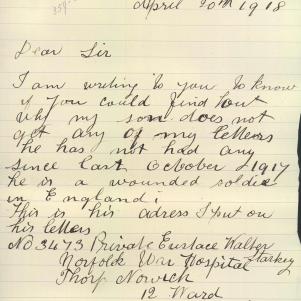 April 20th 1918
Dear Sir
I am writing to you to know
if you could find out
why my son does not
get any of my letters
he has not had any
since last October 1917
he is a wounded soldie
in England;
This is his adress I put on
his letters
No 3473 Private Eustace Walter
Starkey
Norfolk War Hospital
Thorp Nowich
12 Ward